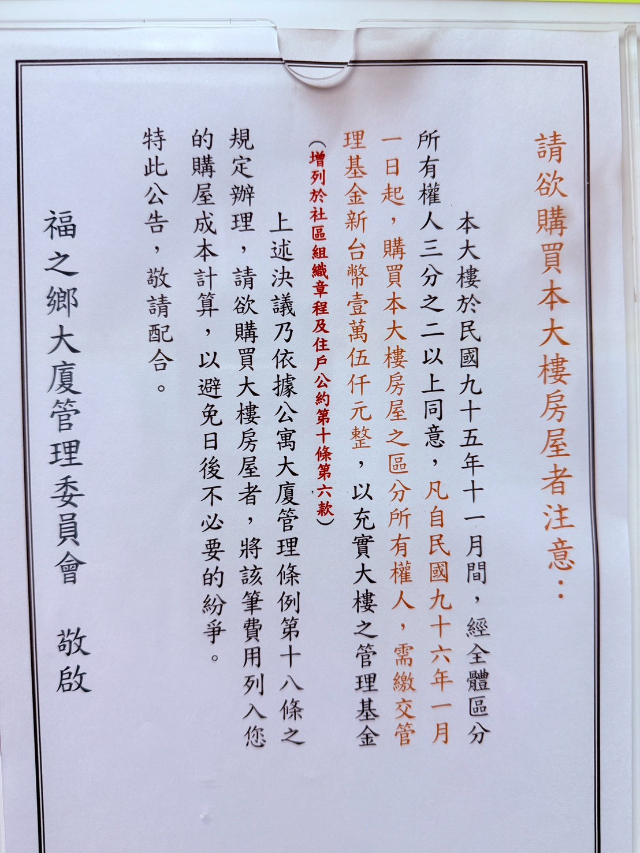 請欲購買本大樓房屋者注意：
本大樓於民國九十五年十一月間，經全體區分
所有權人三分之二以上同意，凡自民國九十六年一月
一日起，購買本大樓房屋之區分所有權人，需繳交管
理基金新台幣壹萬伍仟元整，以充實大樓之管理基金
（增列於社區組織章程及住戶公約第十條第六款）
上述決議乃依據公寓大廈管理條例第十八條之
規定辦理，請欲購買大樓房屋者，將該筆費用列入您
的購屋成本計算，以避免日後不必要的紛爭。
特此公告，敬請配合。
福之鄉大廈管理委員會　敬啟